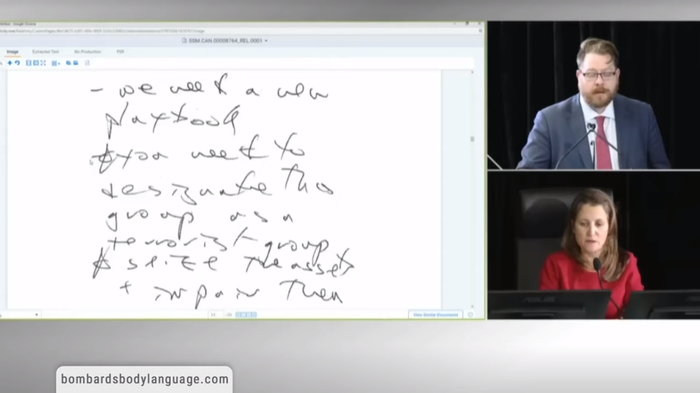 SSM.CAN.00008764_REL.0001
Image
PDF
- we need a new
playbook
you need to
designate this
group as a
terrorist group
& seize the assets
+ impair them
View Similar Documents
ASUS
bombardsbodylanguage.com